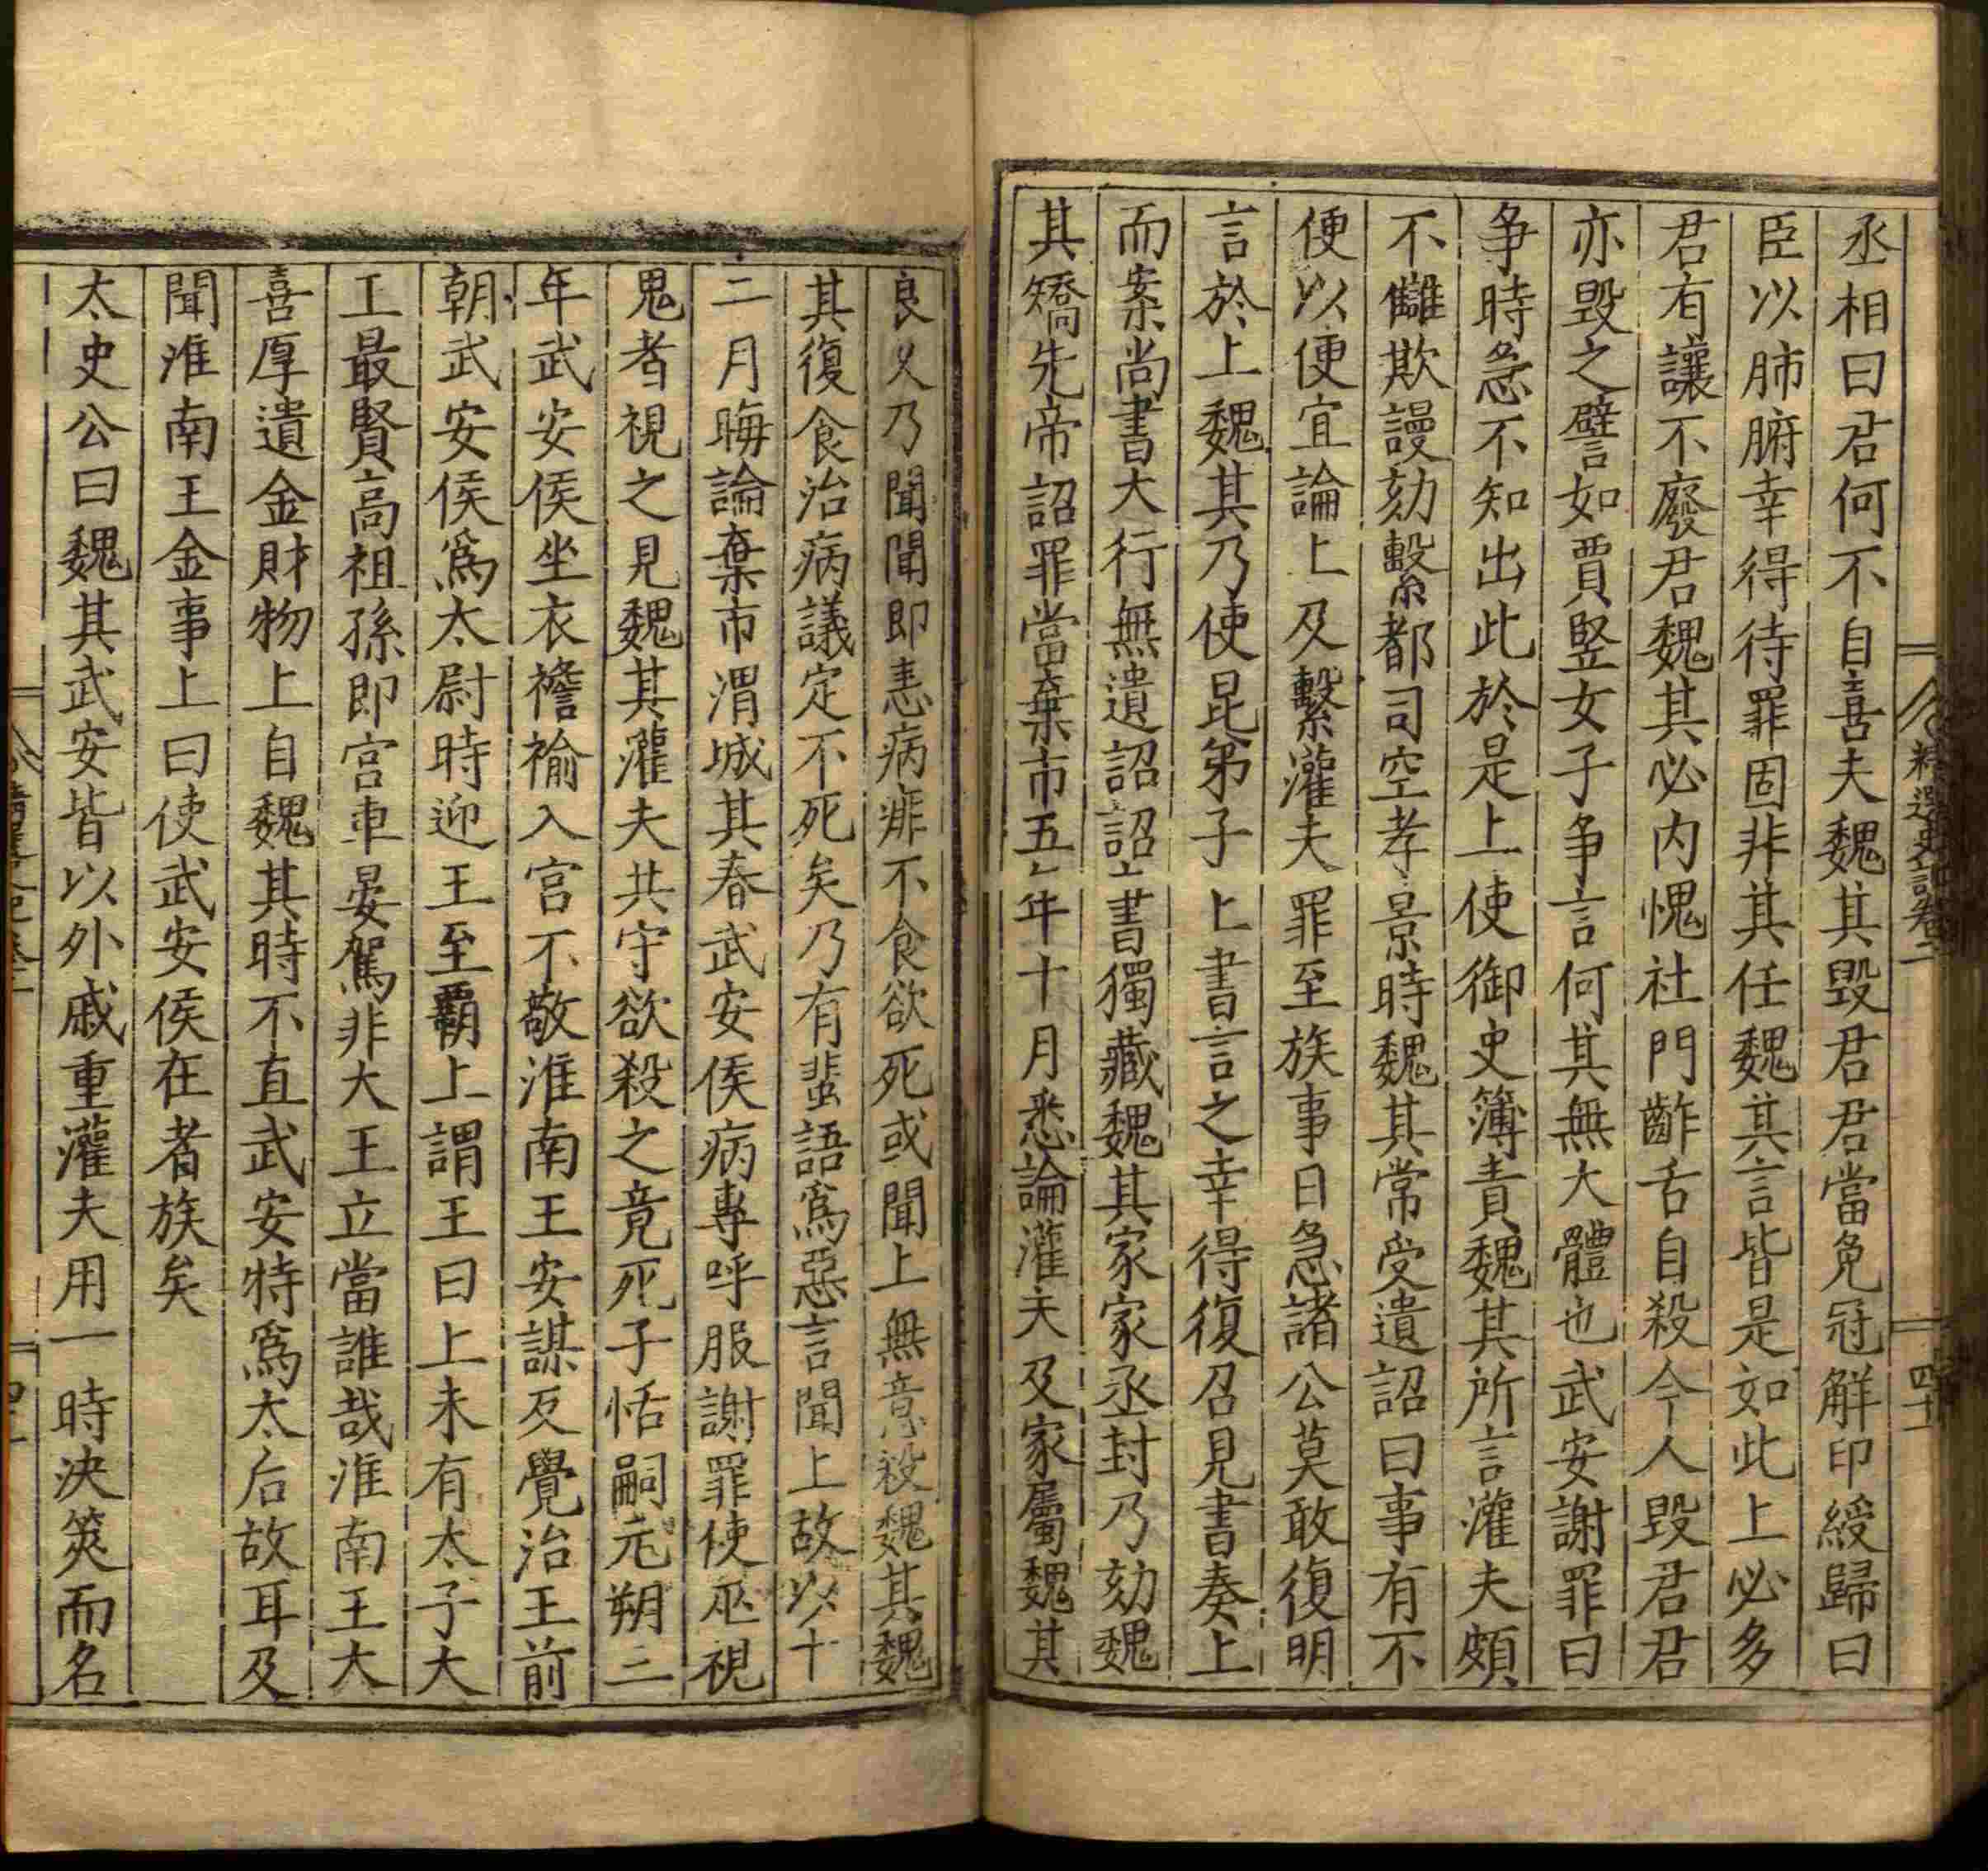 丞相曰君何不自喜夫魏其毀君君當免冠解印綬歸曰
臣以肺腑幸得待罪固非其任魏其言皆是如此上必多
君有讓不廢君魏其必内愧社門齚舌自殺今人毀君君
亦毀之譬如賈竪女子爭言何其無大體也武安謝罪曰
爭時急不知出此於是上使御史簿責魏其所言灌夫頗
不讎欺謾劾繫都司空孝景時魏其常受遺詔曰事有不
便以便宜論上及繫灌夫罪至族事日急諸公莫敢復明
言於上魏其乃使昆弟子上書言之幸得復召見書奏上
而案尚書大行無遺詔詔書獨藏魏其家家丞封乃劾魏
其矯先帝詔罪當棄市五年十月悉論灌夫及家屬魏其
良乆乃聞聞即恚病痱不食欲死或聞上無意殺魏其魏
其復食治病議定不死矣乃有蜚語爲惡言聞上故以十
二月晦論棄市渭城其春武安侯病專呼服謝罪使巫視
鬼者視之見魏其灌夫共守欲殺之竟死子恬嗣元朔三
年武安侯坐衣襜褕入宫不敬淮南王安謀反覺治王前
朝武安侯爲太尉時迎王至霸上謂王曰上未有太子大
王最賢高祖孫即宫車晏駕非大王立當誰哉淮南王大
喜厚遺金財物上自魏其時不直武安特爲太后故耳及
聞淮南王金事上曰使武安侯在者族矣
太史公曰魏其武安皆以外戚重灌夫用一時決筴而名
精選史記卷二